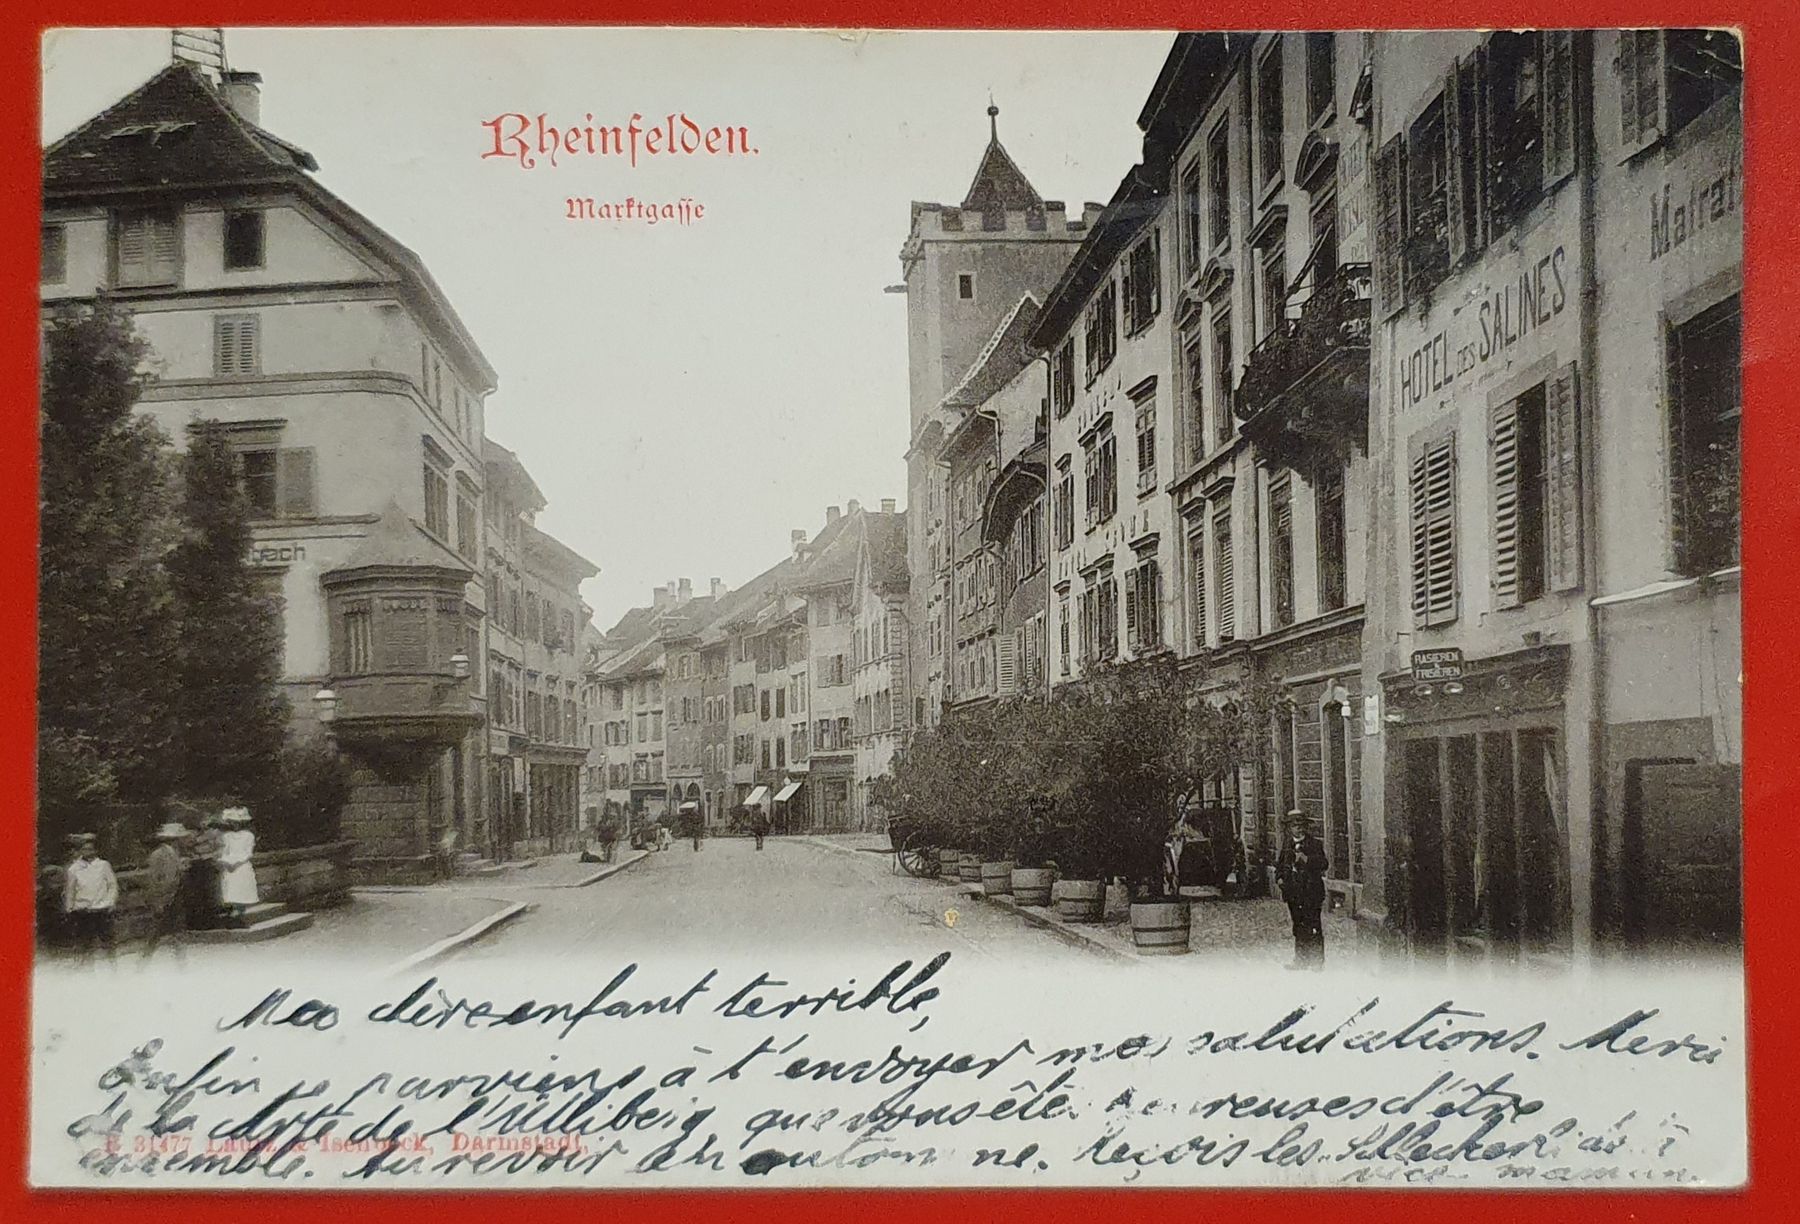 Rheinfelden.
Marktgasse
bach
HOTEL DES SALINES
RASIEREN & FRISIEREN
Ma chère enfant terrible,
Enfin je parviens à t'envoyer mes salutations. Merci
de la carte de l'Utliberg, que vous êtes heureuses d'être
ensemble. Au revoir en automne. Reçois les
maman.
31477 Lautz & Isenbeck, Darmstadt.